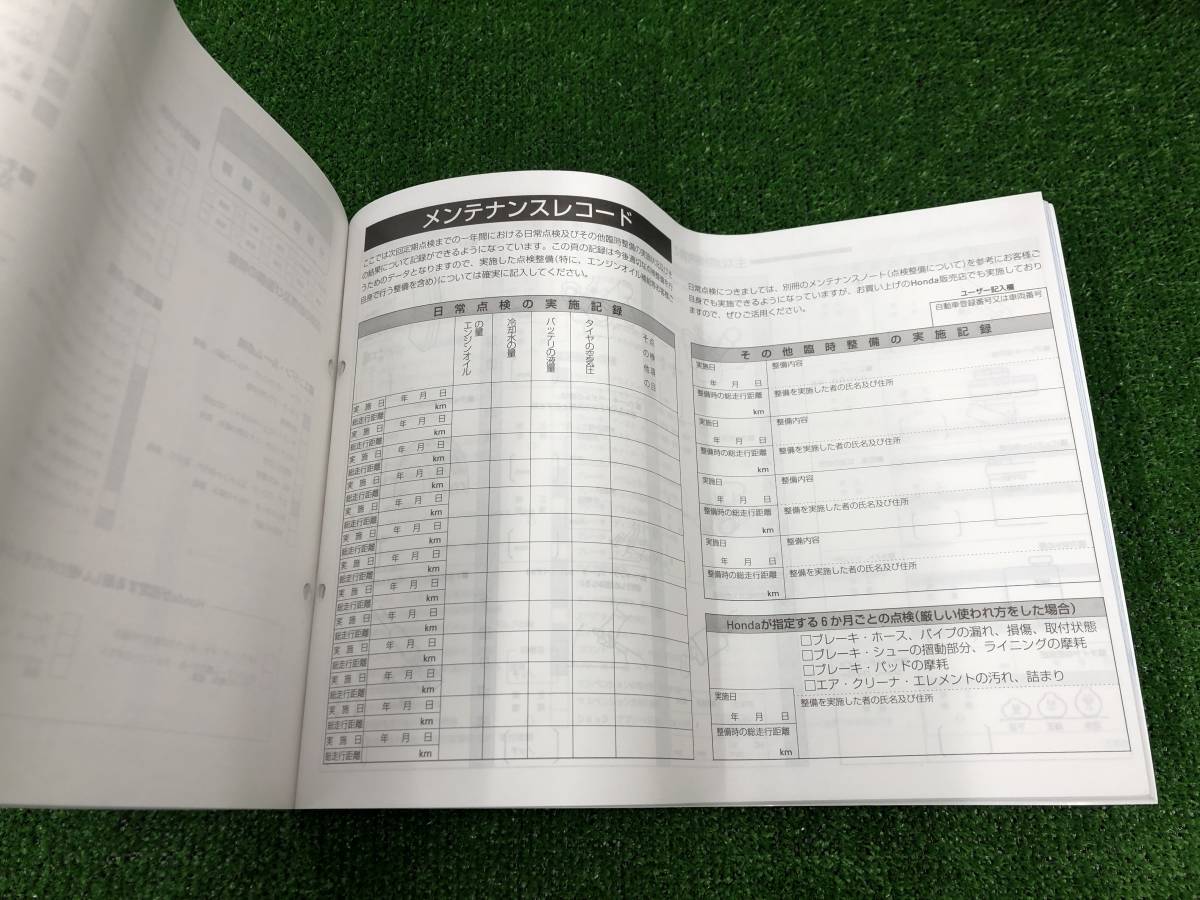 メンテナンスレコード
ここでは次回定期点検までの一年間における日常点検及びその他臨時整備の実施状況及びそ
の結果について記録ができるようになっています。この頁の記録は今後適切な点検整備を行
うためのデータとなりますので、実施した点検整備(特に、エンジンオイル補給等お客様ご
自身で行う整備を含め)については確実に記入してください。
日常点検の実施記録
エンジンオイルの量
冷却水の量
バッテリの液量
タイヤの空気圧
その他の点検項目
実施日 年 月 日
総走行距離 km
実施日 年 月 日
総走行距離 km
実施日 年 月 日
総走行距離 km
実施日 年 月 日
総走行距離 km
実施日 年 月 日
総走行距離 km
実施日 年 月 日
総走行距離 km
実施日 年 月 日
総走行距離 km
実施日 年 月 日
総走行距離 km
実施日 年 月 日
総走行距離 km
実施日 年 月 日
総走行距離 km
実施日 年 月 日
総走行距離 km
実施日 年 月 日
総走行距離 km
実施日 年 月 日
総走行距離 km
日常点検につきましては、別冊のメンテナンスノート(点検整備について)を参考にお客様ご
自身でも実施できるようになっていますが、お買い上げのHonda販売店でも実施しており
ますので、ぜひご活用ください。
ユーザー記入欄
自動車登録番号又は車両番号
その他臨時整備の実施記録
実施日 整備内容
年 月 日
整備時の総走行距離 整備を実施した者の氏名及び住所
km
実施日 整備内容
年 月 日
整備時の総走行距離 整備を実施した者の氏名及び住所
km
実施日 整備内容
年 月 日
整備時の総走行距離 整備を実施した者の氏名及び住所
km
実施日 整備内容
年 月 日
整備時の総走行距離 整備を実施した者の氏名及び住所
km
Hondaが指定する6か月ごとの点検(厳しい使われ方をした場合)
□ブレーキ・ホース、パイプの漏れ、損傷、取付状態
□ブレーキ・シューの摺動部分、ライニングの摩耗
□ブレーキ・パッドの摩耗
□エア・クリーナ・エレメントの汚れ、詰まり
実施日 整備を実施した者の氏名及び住所
年 月 日
整備時の総走行距離
km